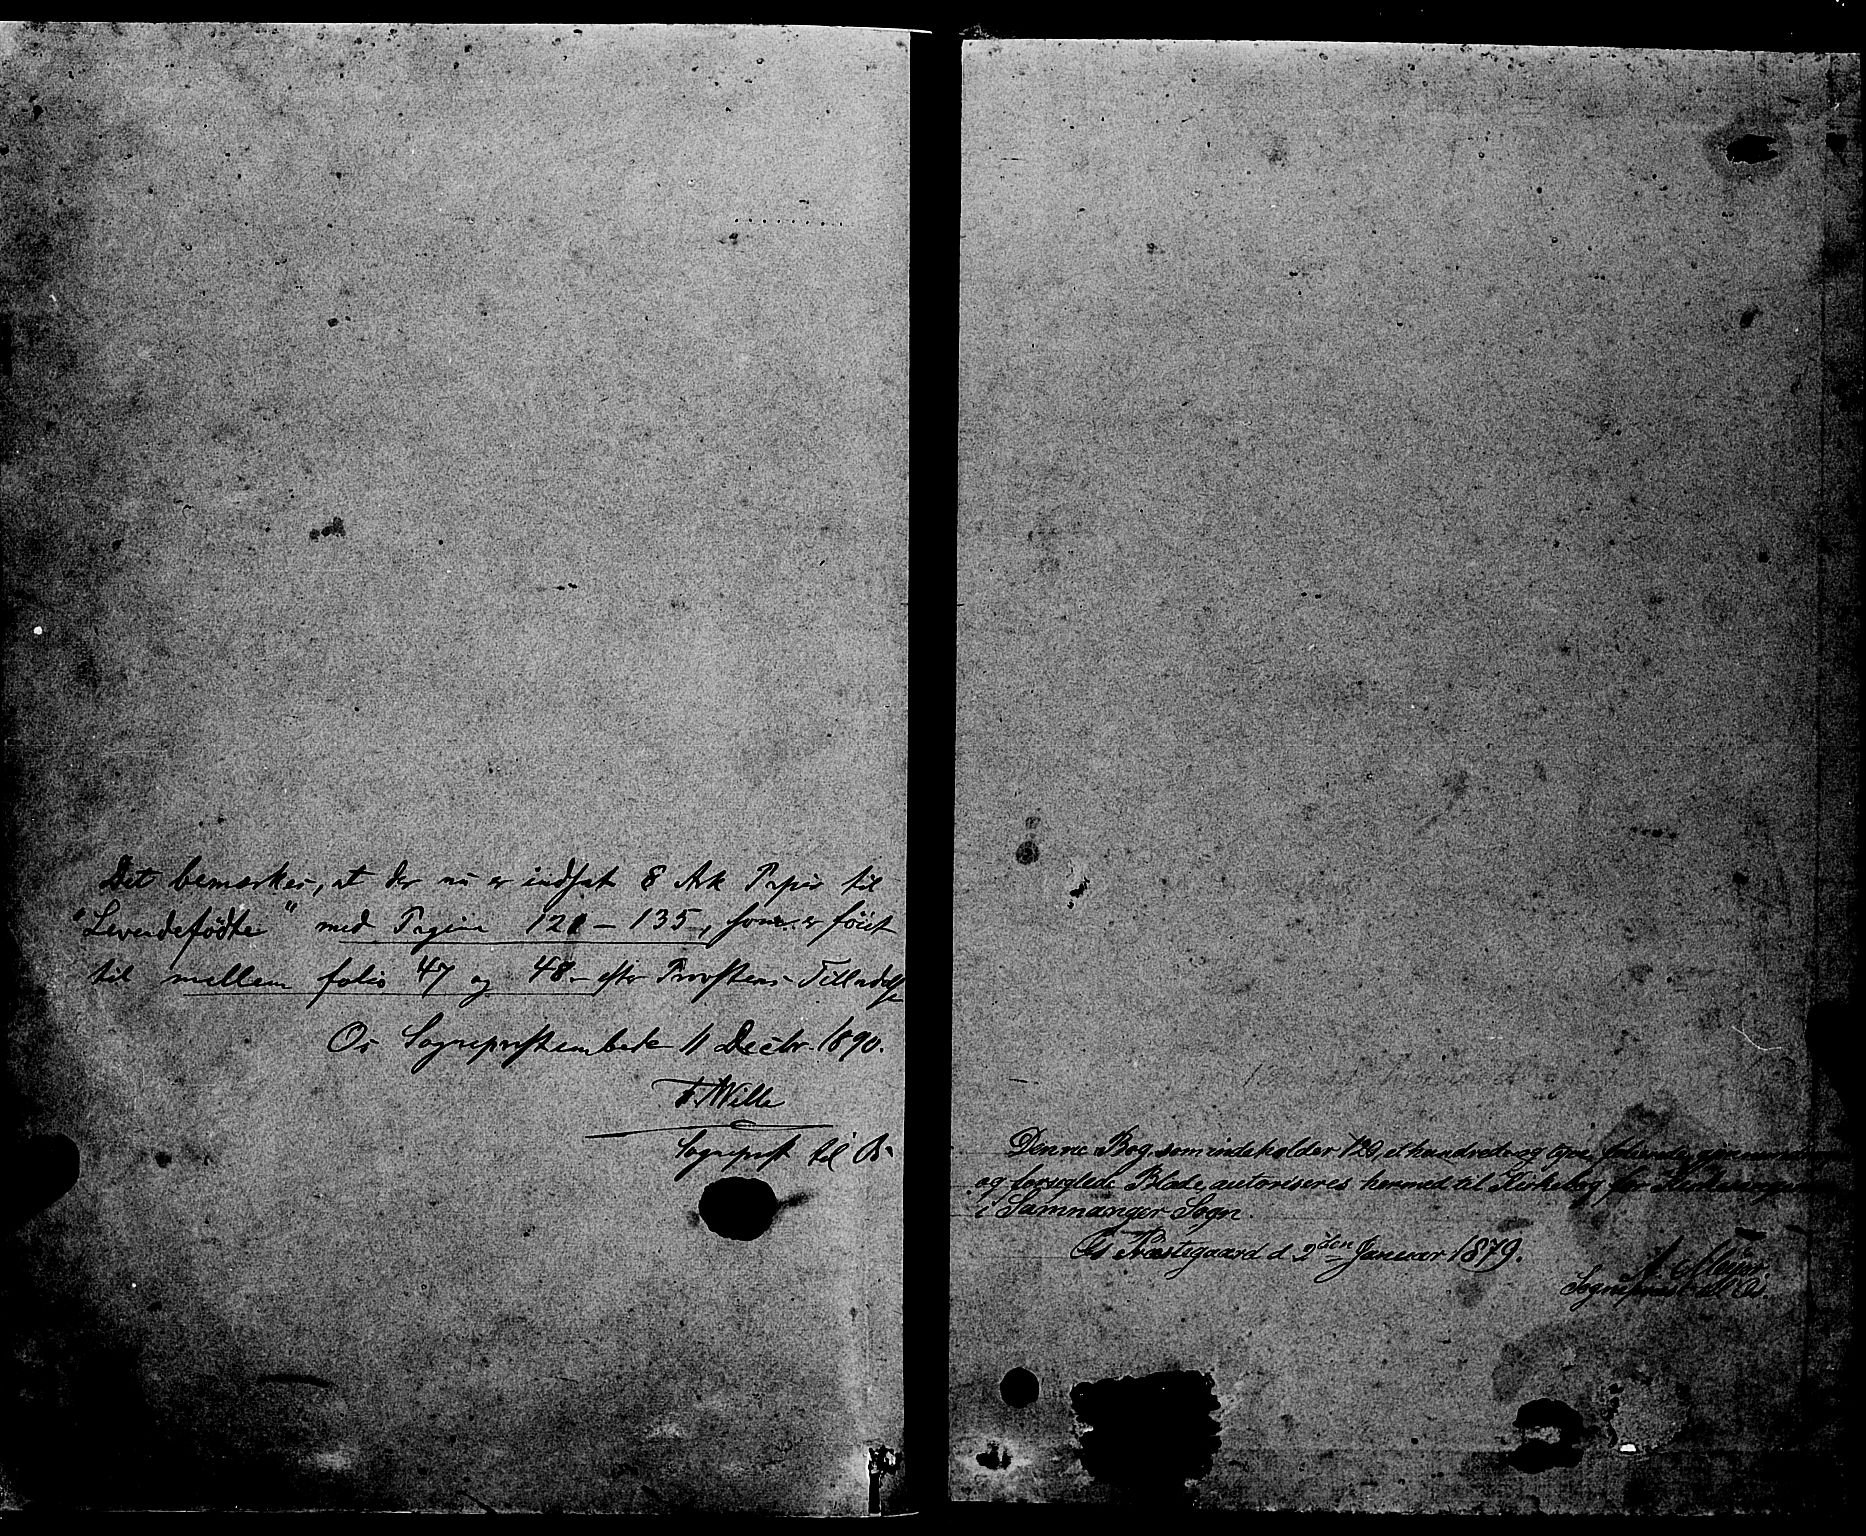 Det bemærkes, at der nu er indsat 8 Ark Papir til
"Levendefödte" med Pagina 120 – 135, som er föiet
til mellem folio 47 og 48 – efter Provstens Tilladelse
Os Sognepræstembede 11 Decbr. 1890.
F. Wille
Sognepræst til Os
Denne Bog, som indeholder 120, et hundrede og tyve, folierede, gjennem
og forseglede Blade, autoriseres hermed til Kirkebog for Kirkesangeren
i Samnanger Sogn.
Os Præstegaard d. 2den Januar 1879.
Sognepræst til Os.